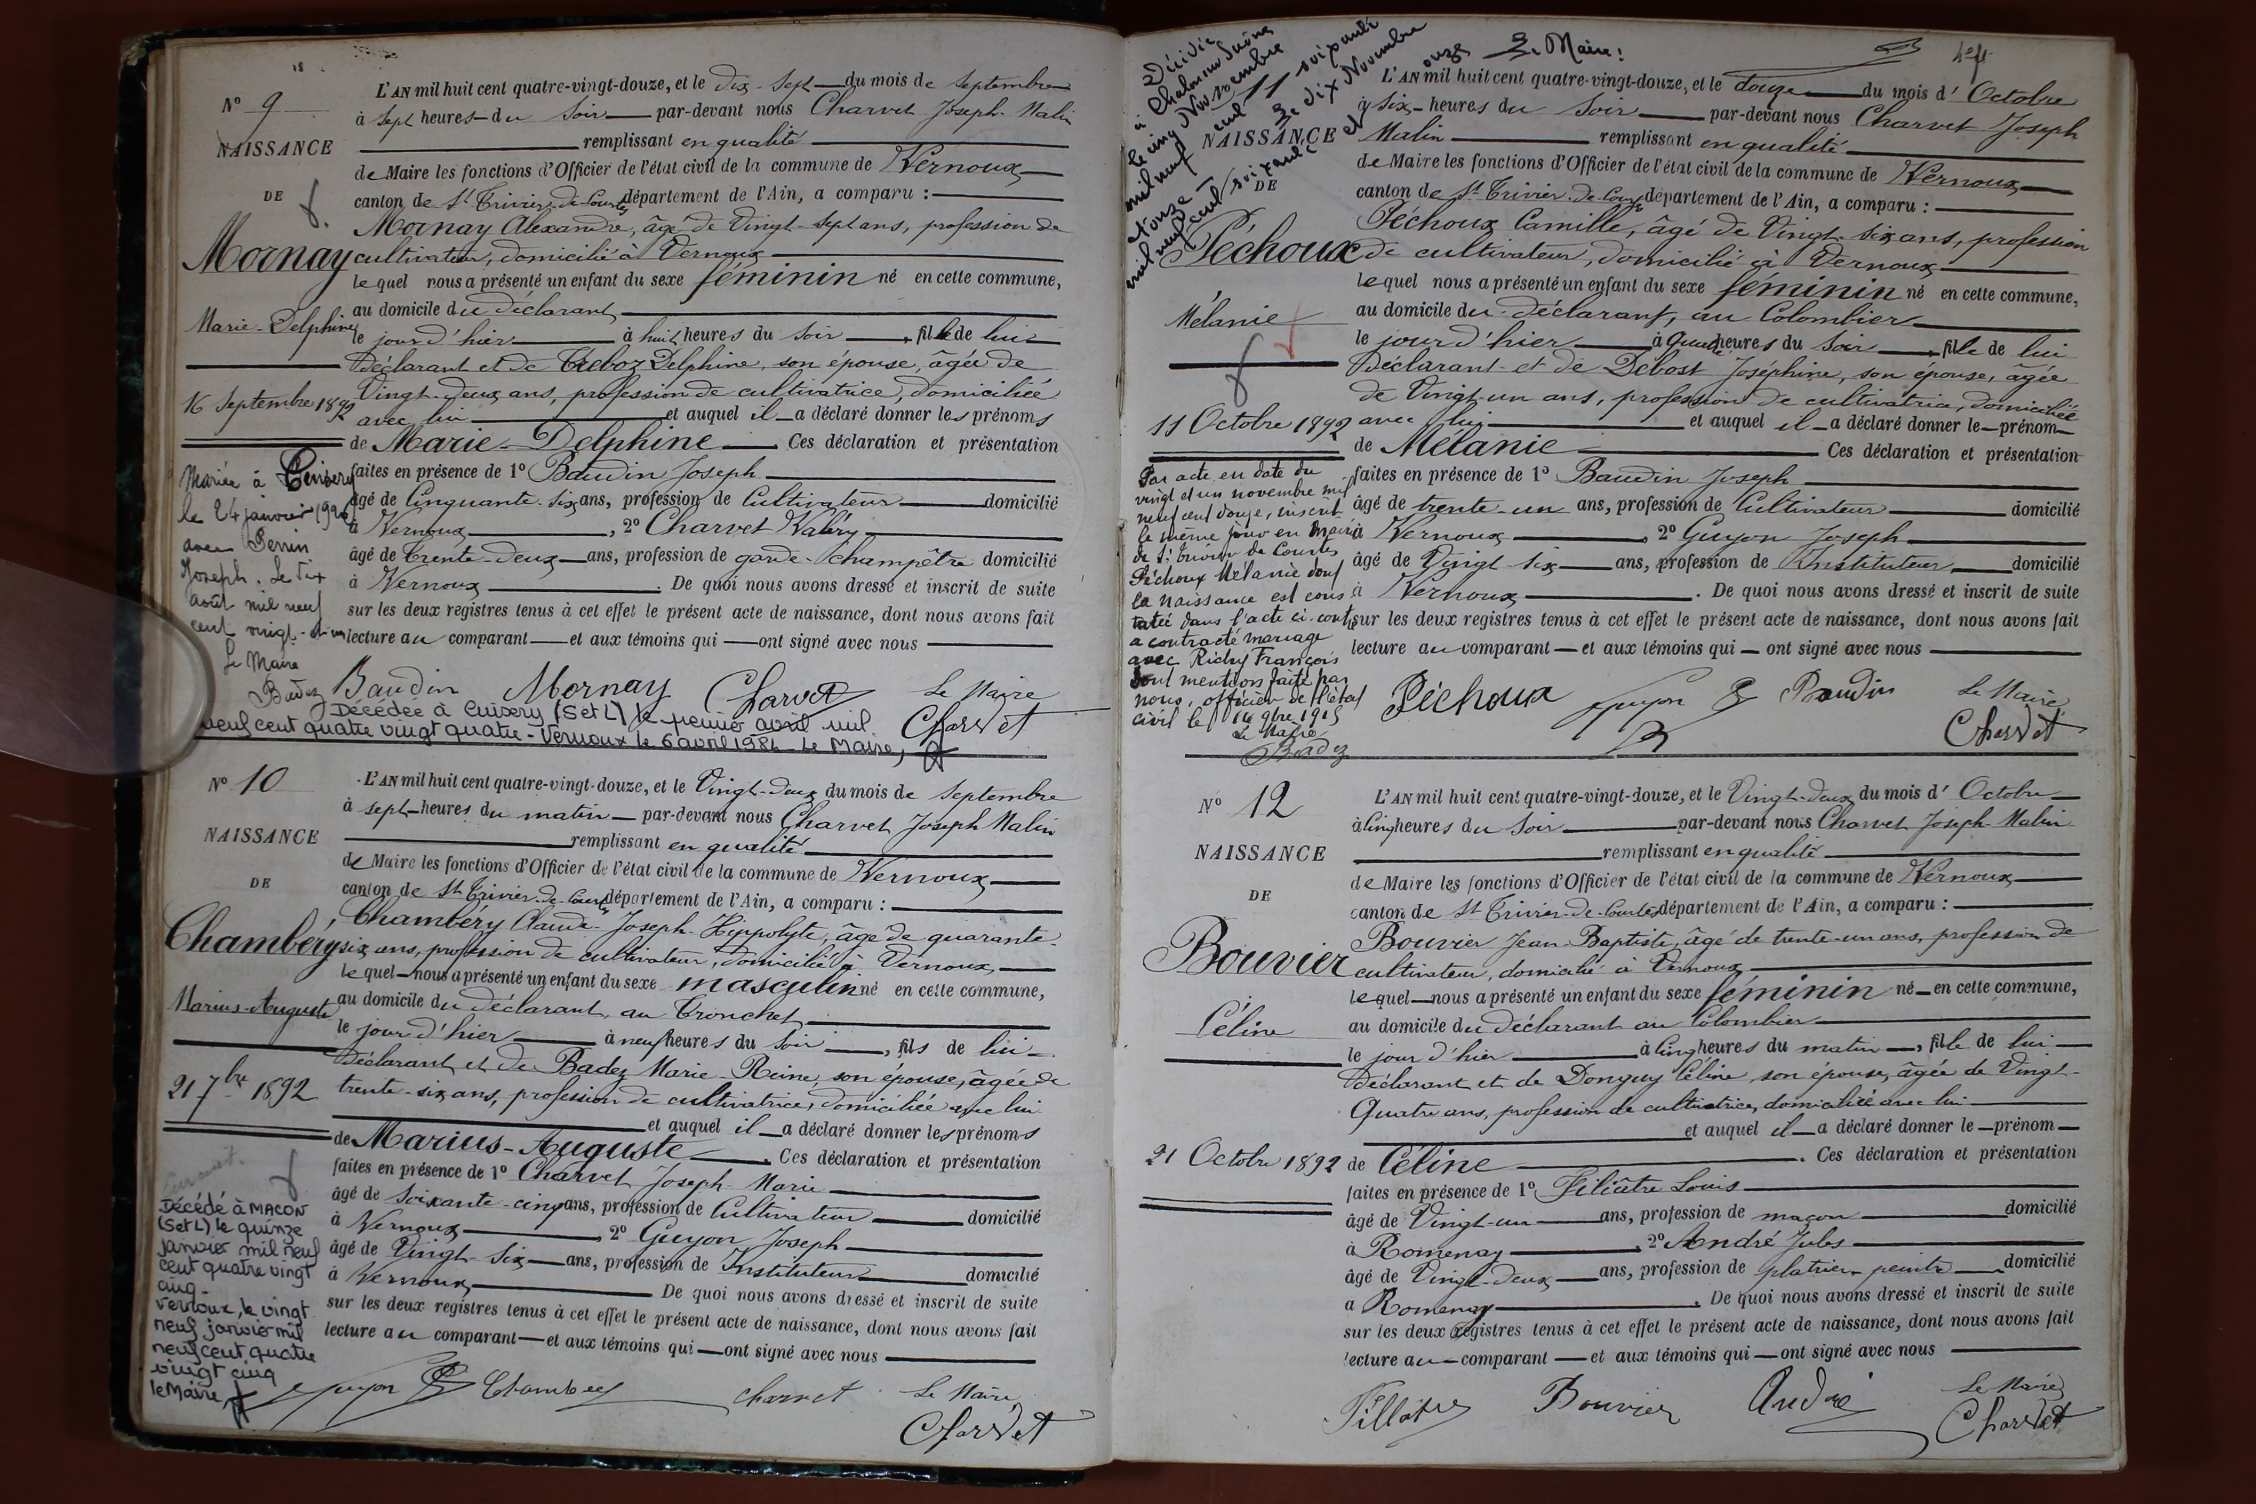 L'AN mil huit cent quatre-vingt-douze, et le dix-sept du mois de Septembre
N° 9
à sept heures du soir par-devant nous Charvet Joseph Malin
NAISSANCE
remplissant en qualité
de Maire les fonctions d'Officier de l'état civil de la commune de Vernoux
DE
canton de St Trivier-de-Courtes département de l'Ain, a comparu :
Mornay Alexandre, âgé de Vingt-sept ans, profession de
Mornay
cultivateur, domicilié à Vernoux
lequel nous a présenté un enfant du sexe féminin né en cette commune,
au domicile du déclarant
Marie-Delphine
le jour d'hier à huit heures du soir, fille de lui
Déclarant et de Treboz Delphine, son épouse, âgée de
Vingt-deux ans, profession de cultivatrice, domiciliée
16 Septembre 1892
avec lui et auquel il a déclaré donner les prénoms
de Marie-Delphine. Ces déclaration et présentation
faites en présence de 1° Baudin Joseph
âgé de Cinquante-six ans, profession de Cultivateur domicilié
à Vernoux, 2° Charvet Valéry
âgé de Trente-deux ans, profession de garde-champêtre domicilié
à Vernoux. De quoi nous avons dressé et inscrit de suite
sur les deux registres tenus à cet effet le présent acte de naissance, dont nous avons fait
lecture au comparant et aux témoins qui ont signé avec nous
Mariée à Cuisery
le 24 janvier 1920
avec Perrin
Joseph. Le dix
août mil neuf
cent vingt-et un
Le Maire
Badez
Baudin Mornay Charvet Le Maire
Charvet
Décédée à Cuisery (S et L) le premier avril mil
neuf cent quatre vingt quatre - Vernoux le 6 avril 1984 - Le Maire,
N° 10
L'AN mil huit cent quatre-vingt-douze, et le Vingt-deux du mois de Septembre
à sept heures du matin par-devant nous Charvet Joseph Malin
NAISSANCE
remplissant en qualité
de Maire les fonctions d'Officier de l'état civil de la commune de Vernoux
DE
canton de St Trivier-de-Courtes département de l'Ain, a comparu :
Chambéry Claude-Joseph-Hippolyte, âgé de quarante-
Chambéry
six ans, profession de cultivateur, domicilié à Vernoux,
lequel nous a présenté un enfant du sexe masculin né en cette commune,
Marius-Auguste
au domicile du déclarant, au Tronchet
le jour d'hier à neuf heures du soir, fils de lui
Déclarant et de Badez Marie-Reine, son épouse, âgée de
21 7bre 1892
trente-six ans, profession de cultivatrice, domiciliée avec lui
et auquel il a déclaré donner les prénoms
de Marius-Auguste. Ces déclaration et présentation
faites en présence de 1° Charvet Joseph-Marie
âgé de soixante-cinq ans, profession de Cultivateur domicilié
à Vernoux, 2° Guyon Joseph
âgé de Vingt-six ans, profession de Instituteur domicilié
à Vernoux De quoi nous avons dressé et inscrit de suite
sur les deux registres tenus à cet effet le présent acte de naissance, dont nous avons fait
lecture au comparant et aux témoins qui ont signé avec nous
Décédé à MACON
(S et L) le quinze
janvier mil neuf
cent quatre vingt
cinq.
Vernoux, le vingt
neuf janvier mil
neuf cent quatre
vingt cinq
le Maire
Guyon Chambéry Charvet Le Maire
Charvet
Décédée
à Chalon sur Saône
le cinq Novembre
mil neuf cent soixante
et onze
Le dix Novembre
mil neuf cent soixante et onze
Le Maire:
N° 11
L'AN mil huit cent quatre-vingt-douze, et le douze du mois d'Octobre
à six heures du soir par-devant nous Charvet Joseph
NAISSANCE
Malin remplissant en qualité
de Maire les fonctions d'Officier de l'état civil de la commune de Vernoux
DE
canton de St Trivier-de-Courtes département de l'Ain, a comparu :
Péchoux Camille, âgé de Vingt-six ans, profession
Péchoux
de cultivateur, domicilié à Vernoux
lequel nous a présenté un enfant du sexe féminin né en cette commune,
Mélanie
au domicile du déclarant, au Colombier
le jour d'hier à quatre heures du soir, fille de lui
Déclarant et de Debost Joséphine, son épouse, âgée
de Vingt-un ans, profession de cultivatrice, domiciliée
11 Octobre 1892
avec lui et auquel il a déclaré donner le prénom
de Mélanie Ces déclaration et présentation
faites en présence de 1° Baudin Joseph
âgé de trente-un ans, profession de Cultivateur domicilié
à Vernoux, 2° Guyon Joseph
âgé de Vingt-six ans, profession de Instituteur domicilié
à Vernoux. De quoi nous avons dressé et inscrit de suite
sur les deux registres tenus à cet effet le présent acte de naissance, dont nous avons fait
lecture au comparant et aux témoins qui ont signé avec nous
Par acte en date du
vingt et un novembre mil
neuf cent douze, inscrit
le même jour en Mairie
de St Trivier de Courtes
Péchoux Mélanie dont
la naissance est cons
tatée dans l'acte ci-contre
a contracté mariage
avec Richy François
dont mention faite par
nous, officier de l'état
civil le 14 9bre 1915
Le Maire
Badez
Péchoux Guyon Baudin Le Maire
Charvet
N° 12
L'AN mil huit cent quatre-vingt-douze, et le Vingt-deux du mois d'Octobre
à Cinq heures du soir par-devant nous Charvet Joseph Malin
NAISSANCE
remplissant en qualité
de Maire les fonctions d'Officier de l'état civil de la commune de Vernoux
DE
canton de St Trivier-de-Courtes département de l'Ain, a comparu :
Bouvier Jean-Baptiste, âgé de trente-un ans, profession de
Bouvier
cultivateur, domicilié à Vernoux
lequel nous a présenté un enfant du sexe féminin né en cette commune,
Céline
au domicile du déclarant au Colombier
le jour d'hier à Cinq heures du matin, fille de lui
Déclarant et de Donguy Céline son épouse, âgée de Vingt-
Quatre ans, profession de cultivatrice, domiciliée avec lui
et auquel il a déclaré donner le prénom
21 Octobre 1892
de Céline. Ces déclaration et présentation
faites en présence de 1° Filiâtre Louis
âgé de Vingt-un ans, profession de maçon domicilié
à Romenay, 2° André Jules
âgé de Vingt-deux ans, profession de platrier-peintre domicilié
à Romenay. De quoi nous avons dressé et inscrit de suite
sur les deux registres tenus à cet effet le présent acte de naissance, dont nous avons fait
lecture au comparant et aux témoins qui ont signé avec nous
Fillâtre Bouvier André Le Maire
Charvet